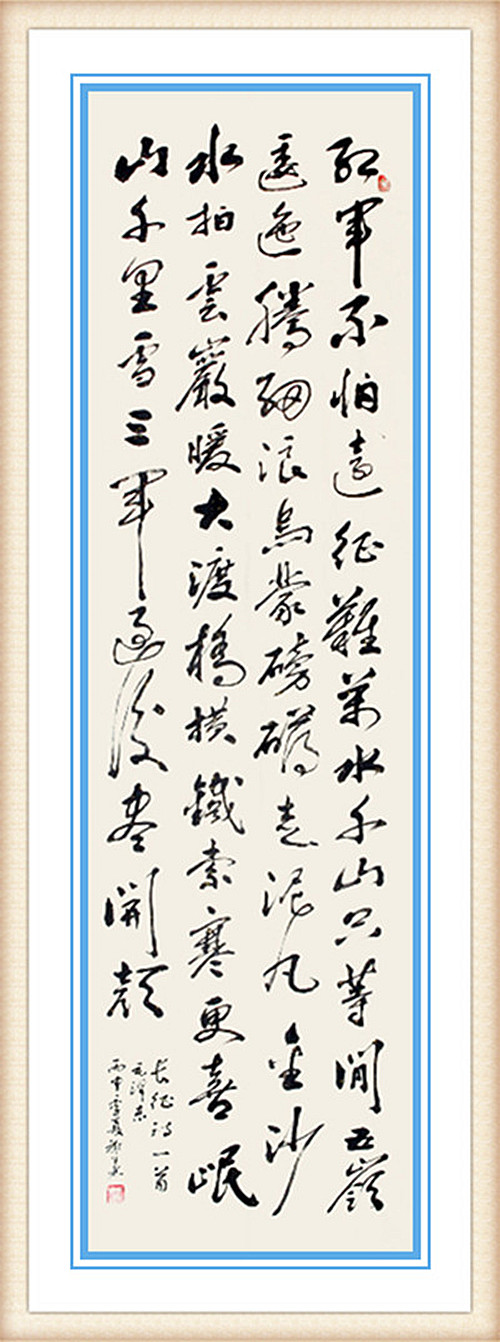 紅軍不怕遠征難萬水千山只等閒五嶺
逶迤騰細浪烏蒙磅礴走泥丸金沙
水拍雲巖暖大渡橋橫鐵索寒更喜岷
山千里雪三軍過後盡開顏
長征詩一首
毛澤東
丙申季夏